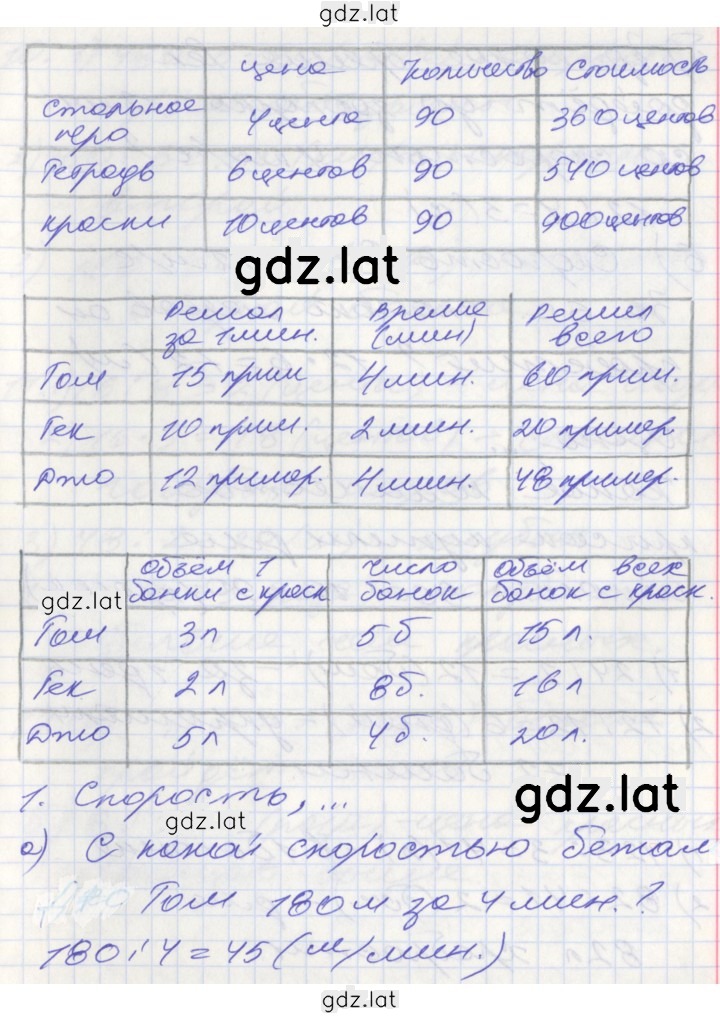 gdz.lat
цена количество Стоимость
Стальное перо 4 цента 90 360 центов
Тетрадь 6 центов 90 540 центов
краски 10 центов 90 900 центов
gdz.lat
Решал за 1 мин. Время (мин) Решил всего
Том 15 прим 4 мин. 60 прим.
Гек 10 прим. 2 мин. 20 пример
Джо 12 пример. 4 мин. 48 пример.
Объём 1 банки с краск Число банок Объём всех банок с краск.
gdz.lat
Том 3 л 5 б 15 л.
Гек 2 л 8 б. 16 л
Джо 5 л 4 б. 20 л.
1. Скорость, ...
gdz.lat
gdz.lat
а) С какой скоростью бежал
Том 180 м за 4 мин.?
180 : 4 = 45 (м/мин.)
gdz.lat